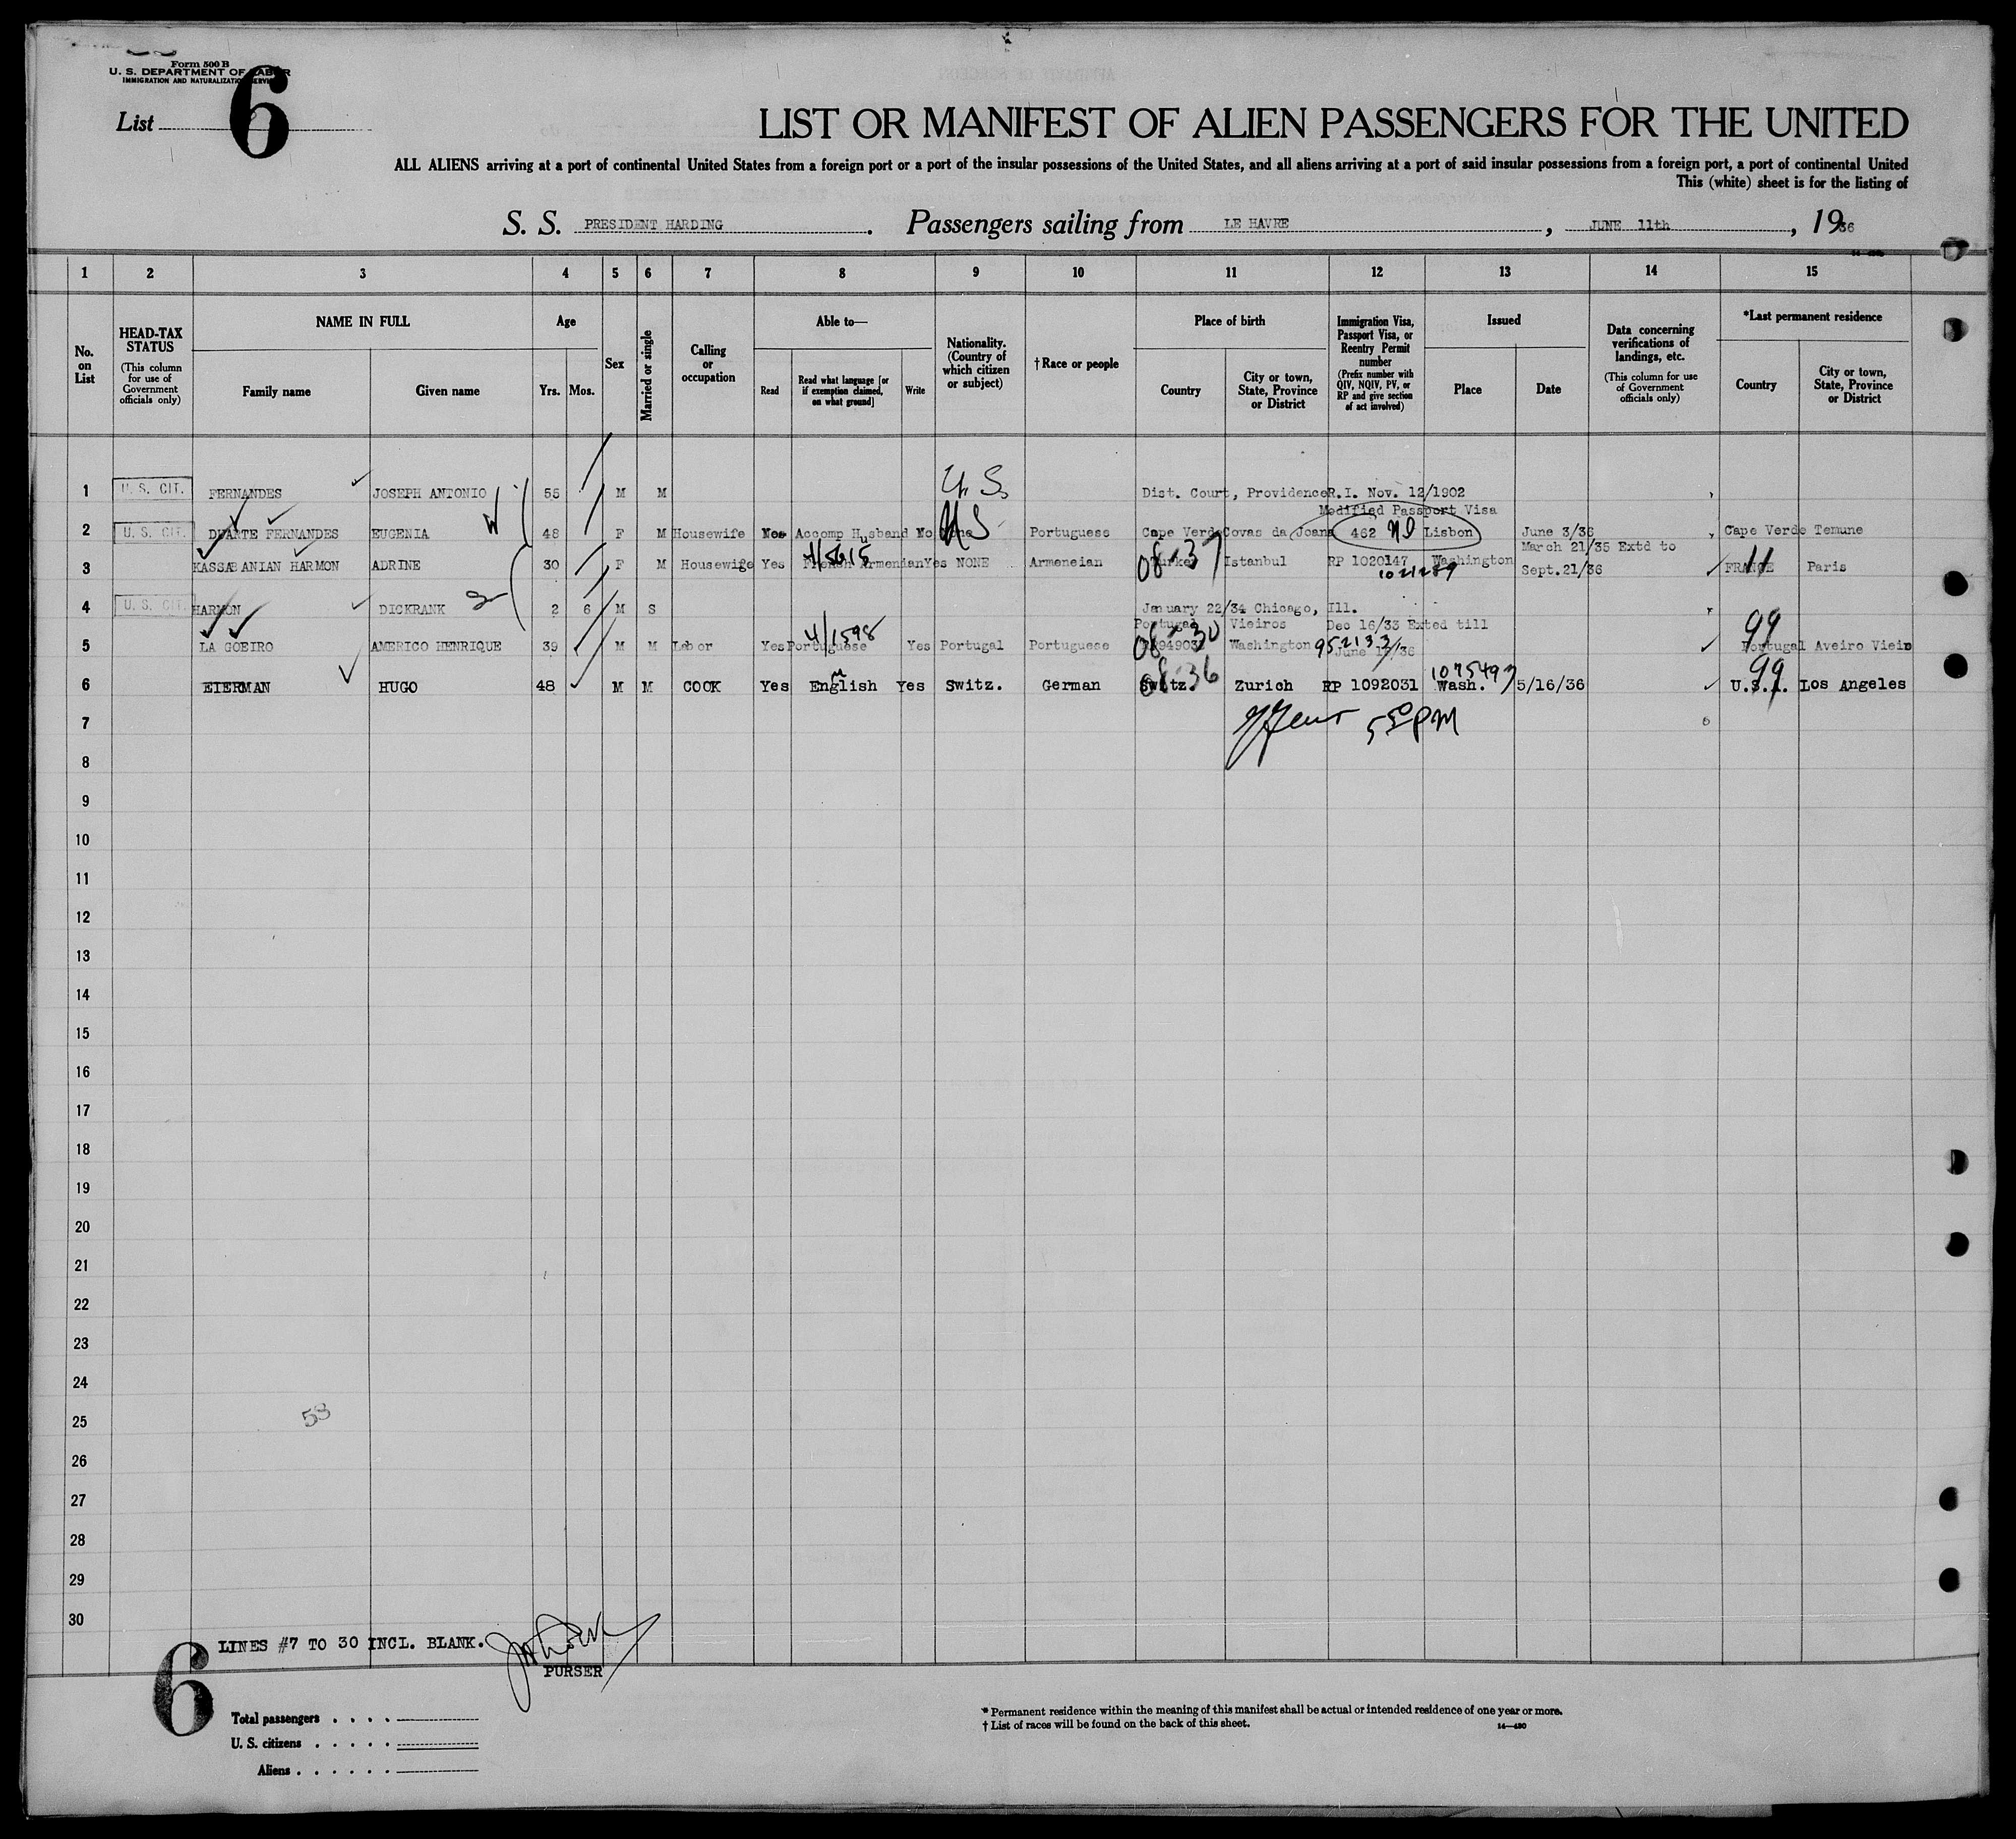 Form 500 B
U. S. DEPARTMENT OF LABOR
IMMIGRATION AND NATURALIZATION SERVICE
List 6
LIST OR MANIFEST OF ALIEN PASSENGERS FOR THE UNITED
ALL ALIENS arriving at a port of continental United States from a foreign port or a port of the insular possessions of the United States, and all aliens arriving at a port of said insular possessions from a foreign port, a port of continental United
This (white) sheet is for the listing of
S. S. PRESIDENT HARDING. Passengers sailing from LE HAVRE, JUNE 11th, 1936
1 2 3 4 5 6 7 8 9 10 11 12 13 14 15
No. on List
HEAD-TAX STATUS (This column for use of Government officials only)
NAME IN FULL
Family name
Given name
Age
Yrs. Mos.
Sex
Married or single
Calling or occupation
Able to—
Read
Read what language [or if exemption claimed, on what ground]
Write
Nationality. (Country of which citizen or subject)
† Race or people
Place of birth
Country
City or town, State, Province or District
Immigration Visa, Passport Visa, or Reentry Permit number (Prefix number with QIV, NQIV, PV, or RP and give section of act involved)
Issued
Place
Date
Data concerning verifications of landings, etc. (This column for use of Government officials only)
*Last permanent residence
Country
City or town, State, Province or District
1 U. S. CIT. FERNANDES JOSEPH ANTONIO 55 M M U. S. Dist. Court, Providence R.I. Nov. 12/1902
Modified Passport Visa
2 U. S. CIT. DUARTE FERNANDES EUGENIA W 48 F M Housewife No Accomp Husband No US Portuguese Cape Verde Covas da Joana 462 Lisbon June 3/36 Cape Verde Temune
March 21/35 Extd to
3 KASSABANIAN HARMON ADRINE 30 F M Housewife Yes 4/5615 French Armenian Yes NONE Armeneian 08-37 Turkey Istanbul RP 1020147 Washington Sept.21/36 FRANCE 11 Paris
1021289
4 U. S. CIT. HARMON DICKRANK 2 6 M S January 22/34 Chicago, Ill.
Portugal Vieiros Dec 16/33 Exted till
5 LA GOEIRO AMERICO HENRIQUE 39 M M Labor Yes Portuguese 4/1598 Yes Portugal Portuguese 08-30 Washington 952133 99 Portugal Aveiro Vieir
6 EIERMAN HUGO 48 M M COOK Yes English Yes Switz. German 08-36 Switz. Zurich RP 1092031 1075493 Wash. 5/16/36 99 U.S.A. Los Angeles
7 5 50 PM
8
9
10
11
12
13
14
15
16
17
18
19
20
21
22
23
24
25 53
26
27
28
29
30
LINES #7 TO 30 INCL. BLANK.
PURSER
6
Total passengers . . . .
U. S. citizens . . . . .
Aliens . . . . . .
* Permanent residence within the meaning of this manifest shall be actual or intended residence of one year or more.
† List of races will be found on the back of this sheet.
14—430